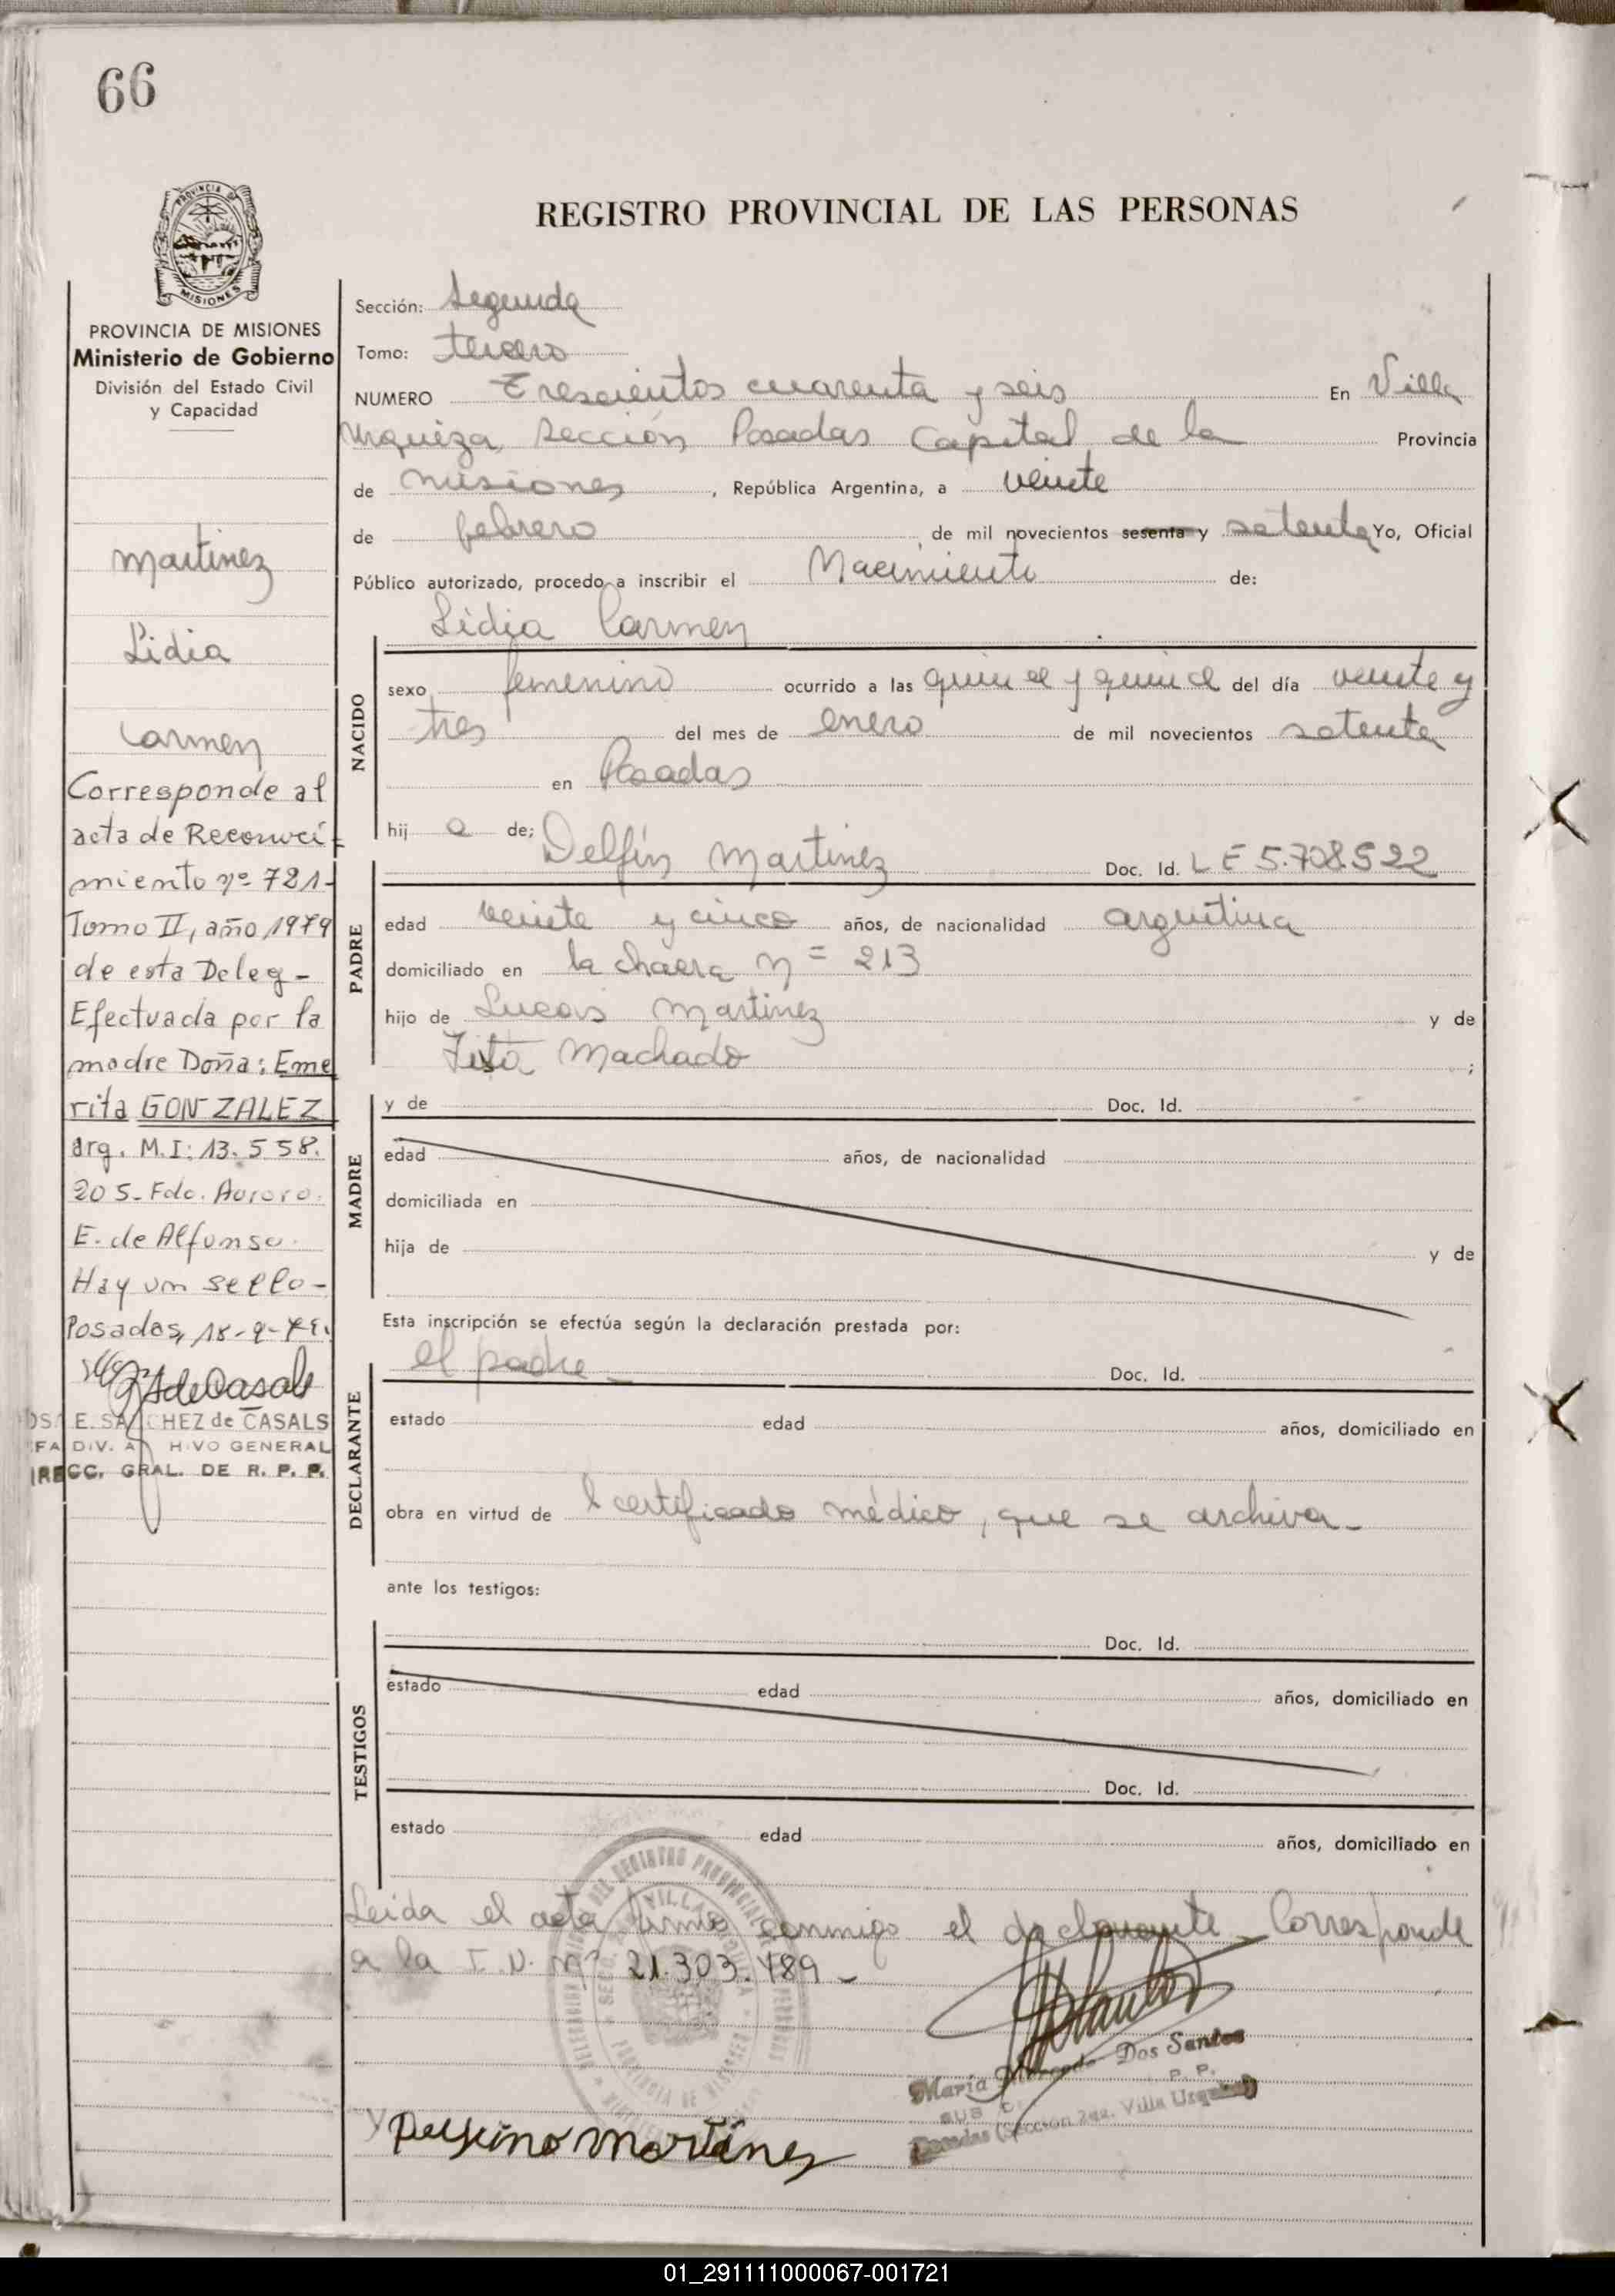 66
REGISTRO PROVINCIAL DE LAS PERSONAS
MISIONES
PROVINCIA DE MISIONES
Ministerio de Gobierno
División del Estado Civil
y Capacidad
Martinez
Lidia
Carmen
Corresponde al
acta de Reconoci-
miento nº 721-
Tomo II, año 1979
de esta Deleg-
Efectuada por la
madre Doña: Eme
rita GONZALEZ
arg. M.I: 13.558.
205- Fdo. Aurora
E. de Alfonso.
Hay un sello-
Posadas, 18-9-79.
E. SANCHEZ de CASALS
DIV. ARCHIVO GENERAL
DIRECC. GRAL. DE R. P. P.
Sección: Segunda
Tomo: tercero
NUMERO Trescientos cuarenta y seis En Villa
Urquiza, Sección Posadas Capital de la Provincia
de Misiones, República Argentina, a veinte
de febrero de mil novecientos sesenta y setenta Yo, Oficial
Público autorizado, procedo a inscribir el Nacimiento de:
Lidia Carmen
NACIDO
sexo femenino ocurrido a las quince y quince del día veinte y
tres del mes de enero de mil novecientos setenta
en Posadas
hij a de; Delfín Martinez Doc. Id. L E 5.708.522
PADRE
edad veinte y cinco años, de nacionalidad argentina
domiciliado en la chacra nº 213
hijo de Lucas Martinez y de
Machado ;
MADRE
y de Doc. Id.
edad años, de nacionalidad
domiciliada en
hija de y de
Esta inscripción se efectúa según la declaración prestada por:
DECLARANTE
el padre - Doc. Id.
estado edad años, domiciliado en
obra en virtud de l certificado médico, que se archiva-
ante los testigos:
TESTIGOS
Doc. Id.
estado edad años, domiciliado en
Doc. Id.
estado edad años, domiciliado en
Leida el acta firma conmigo el declarante - Corresponde
a la I.N. nº 21.303.489 -
María Dos Santos
P. P.
Posadas (Sección 2da. Villa Urquiza)
Delfino Martinez
01_291111000067-001721